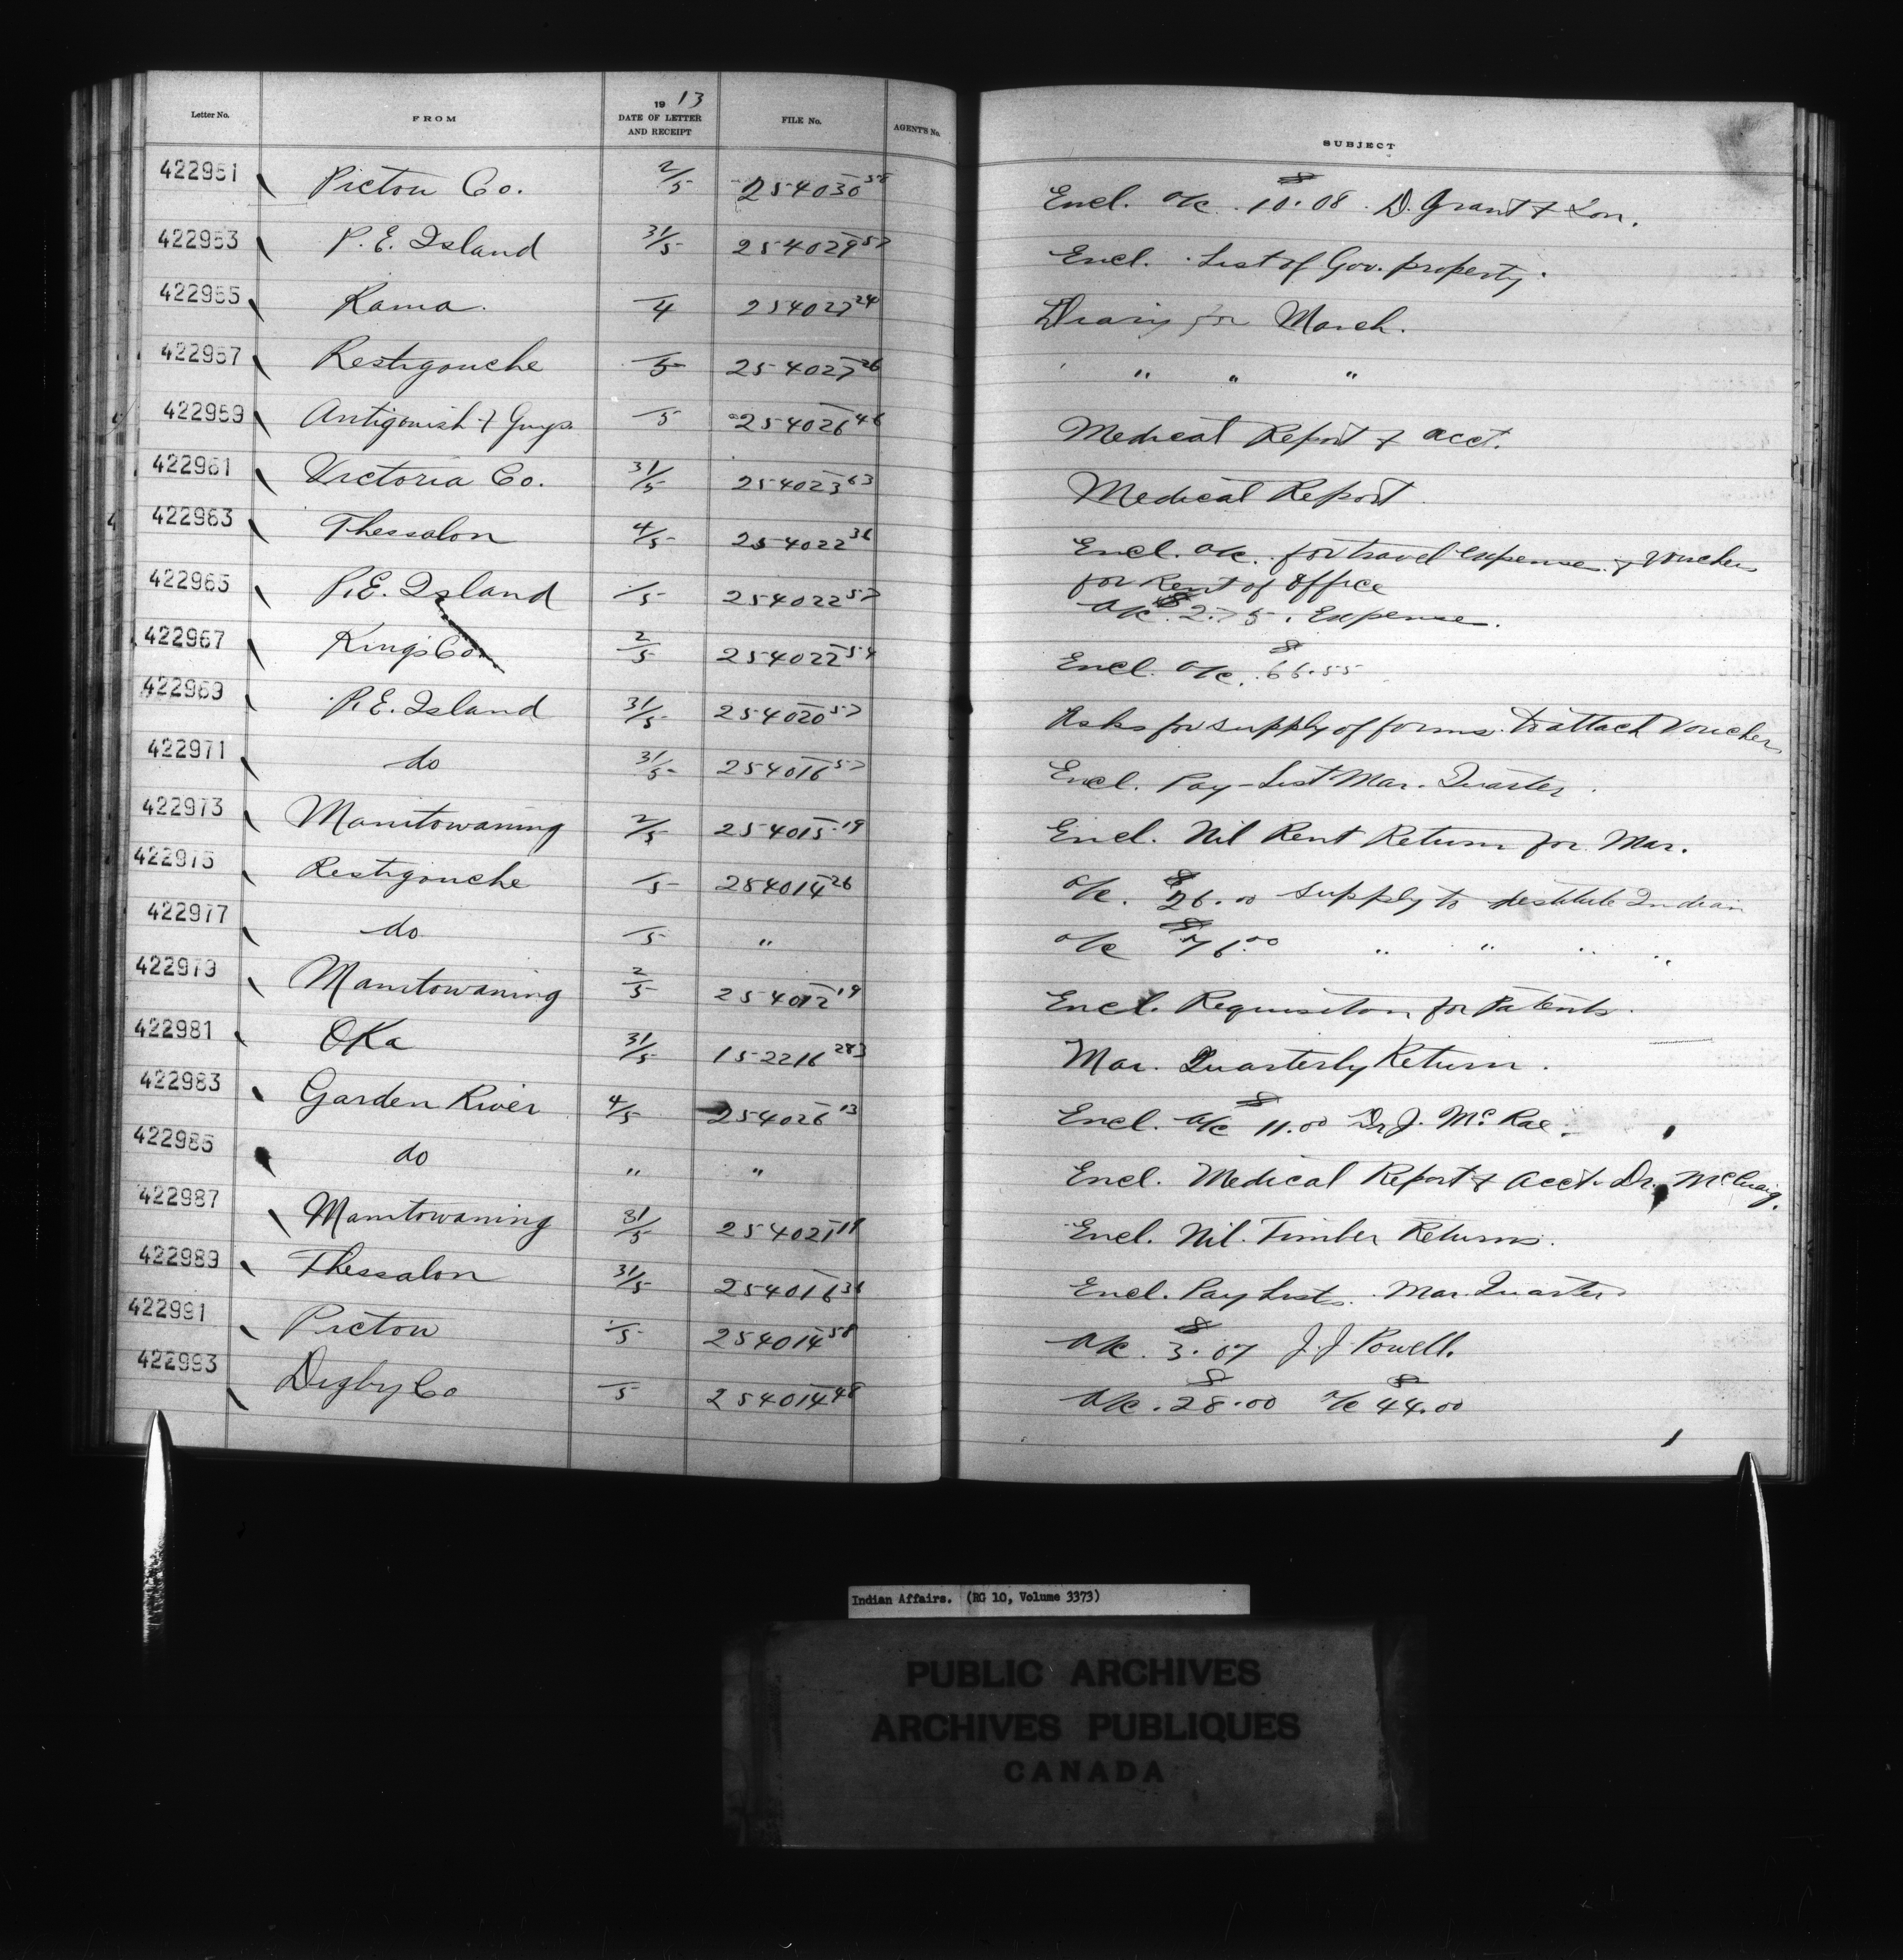 Letter No. FROM 19 13 DATE OF LETTER AND RECEIPT FILE No. AGENT'S No. SUBJECT
422951 Pictou Co. 2/5 254030 58 Encl. a/c $10.08. D. Grant & Son.
422953 P. E. Island 31/5 254029 57 Encl. List of Gov. property.
422955 Rama. /4 254027 24 Diary for March.
422957 Restigouche /5 254027 26 " " "
422959 Antigonish & Guys. /5 254026 46 Medical Report & acct.
422961 Victoria Co. 31/5 254023 63 Medical Report
422963 Thessalon 4/5 254022 36 Encl. a/c. for travel expense. & voucher
for Rent of office
422965 P. E. Island /5 254022 57 a/c. $2.75. Expense.
422967 Kings Co. 2/5 254022 54 Encl. a/c. $66.55
422969 P. E. Island 31/5 254020 57 Asks for supply of forms. To attach voucher
422971 do 31/5 254016 57 Encl. Pay-List Mar. Quarter.
422973 Manitowaning 2/5 254015 19 Encl. Nil Rent Return for Mar.
422975 Restigouche /5 254014 26 a/c. $26.00 supply to destitute Indian
422977 do /5 " a/c $76.00 " " " "
422979 Manitowaning 2/5 254012 19 Encl. Requisition for Patents.
422981 Oka 31/5 152216 283 Mar. Quarterly Return.
422983 Garden River 4/5 254026 13 Encl. a/c $11.00 Dr J. McRae.
422985 do " " Encl. Medical Report & acct. Dr. McCraig.
422987 Manitowaning 31/5 254021 19 Encl. Nil. Timber Returns.
422989 Thessalon 31/5 254016 36 Encl. Pay Lists. Mar. Quarter
422991 Pictou /5 254014 58 a/c. $3.07 J. J Powell.
422993 Digby Co /5 254014 48 a/c. $28.00 a/c $44.00
Indian Affairs. (RG 10, Volume 3373)
PUBLIC ARCHIVES
ARCHIVES PUBLIQUES
CANADA